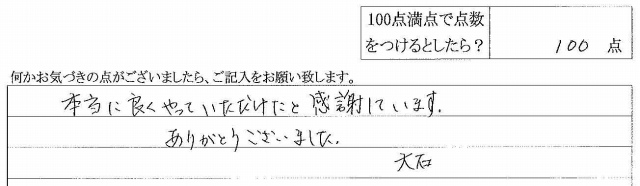 100点満点で点数
をつけるとしたら？ 100 点
何かお気づきの点がございましたら、ご記入をお願い致します。
本当に良くやっていただけたと感謝しています.
ありがとうございました.
大石